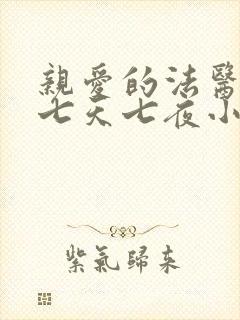 親愛的法醫
七天七夜小
紫氣歸來